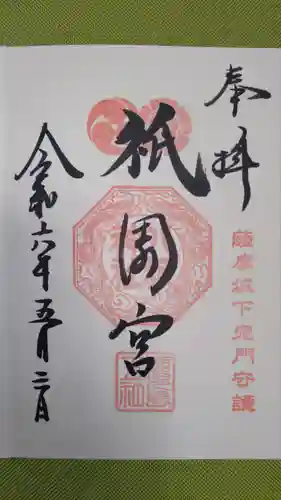 奉拝
薩摩城下鬼門守護
祇園宮
令和六年五月二日